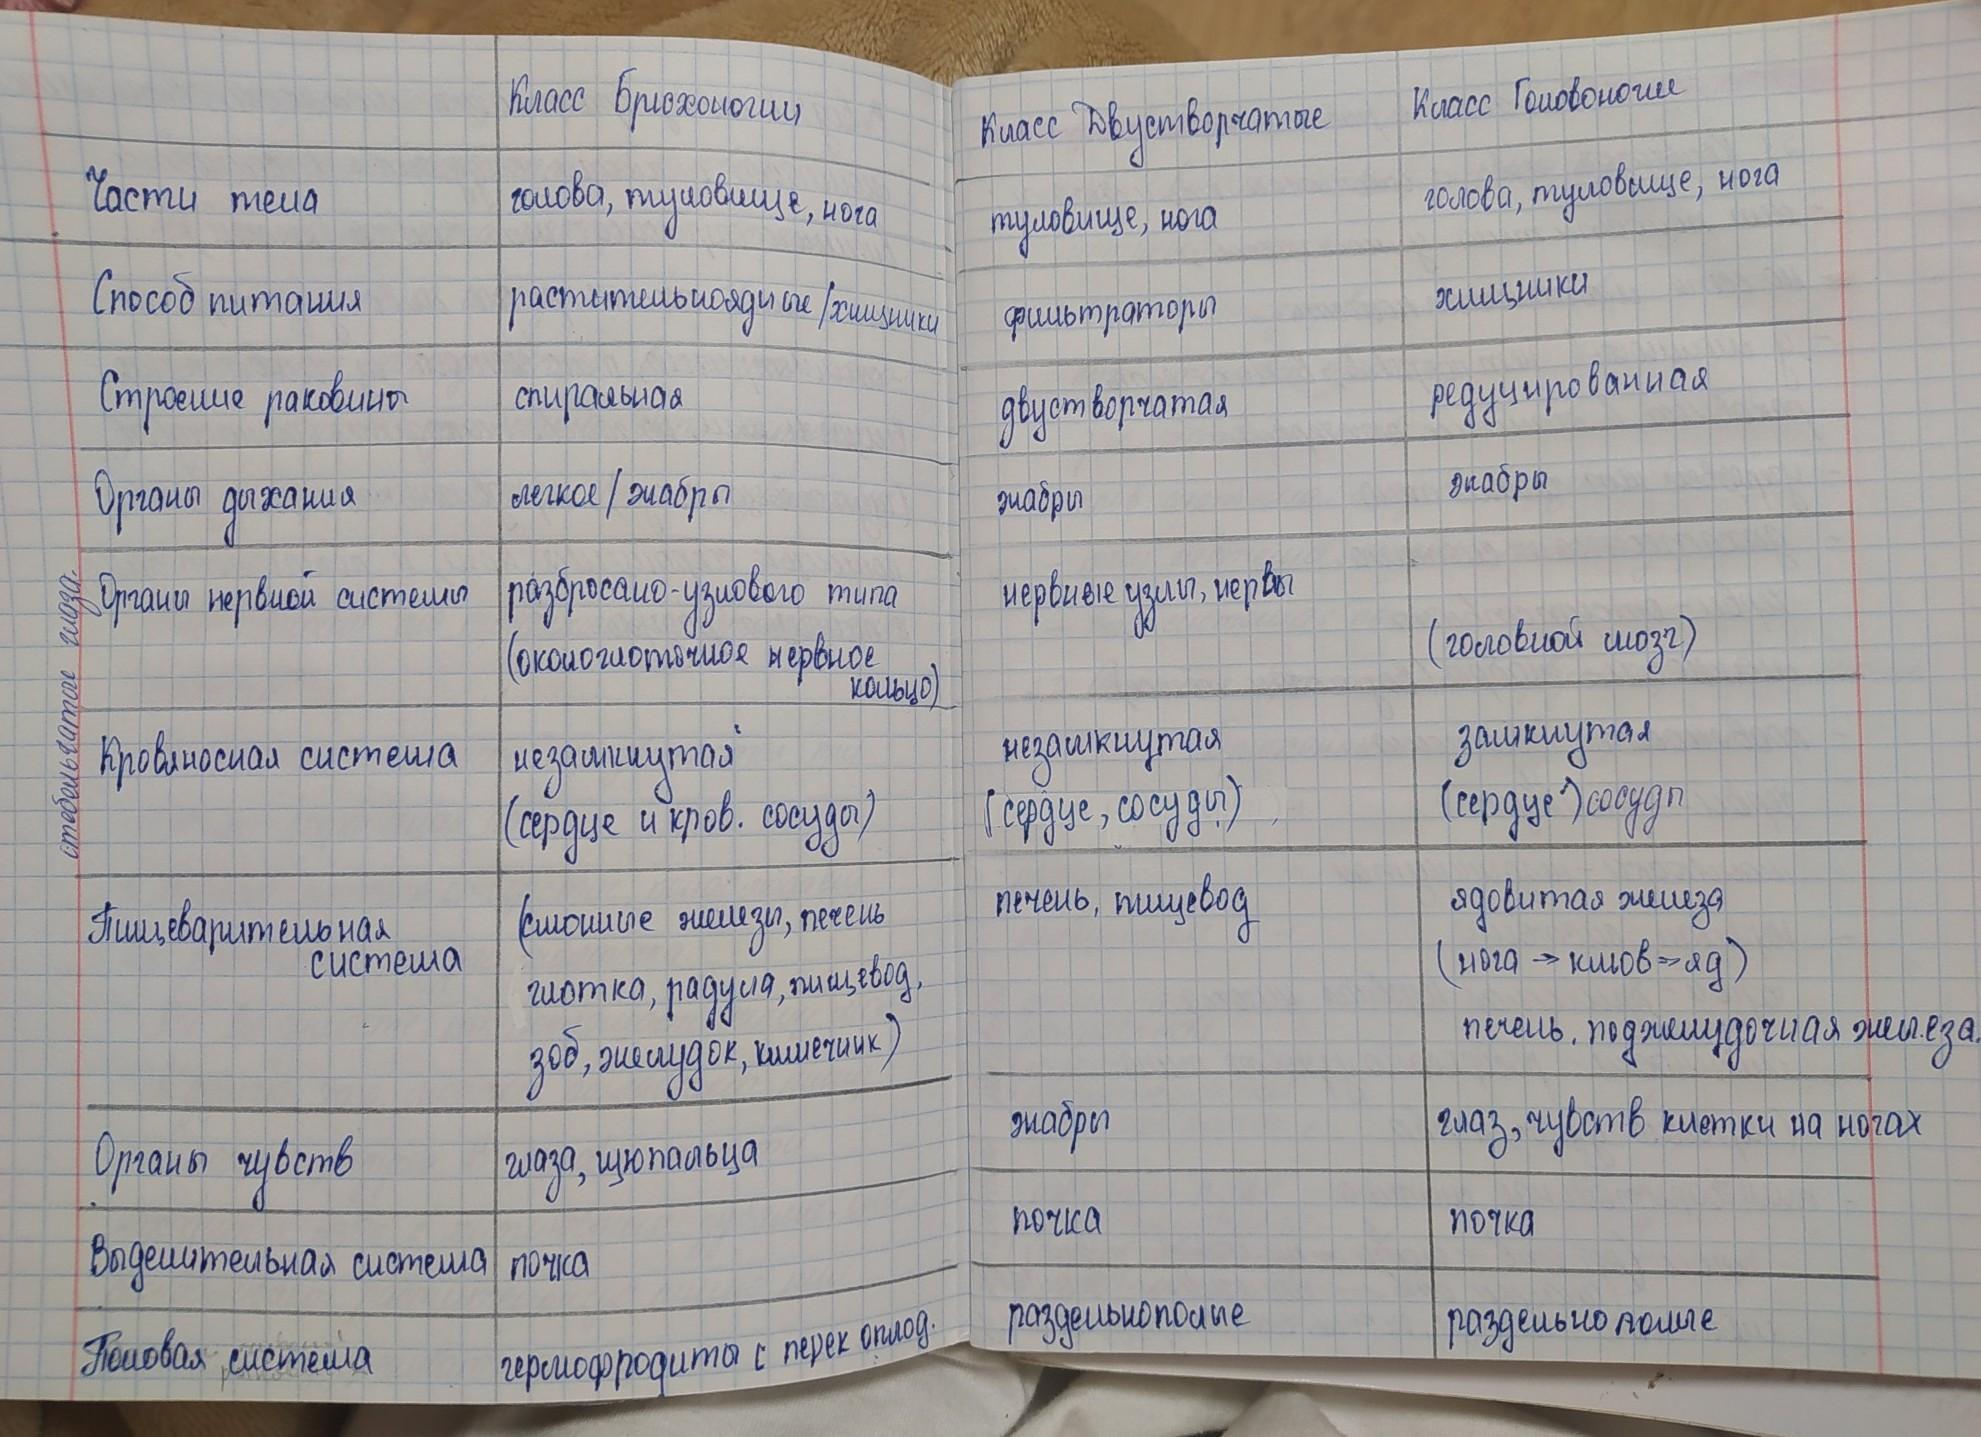 Класс Брюхоногии
Класс Двустворчатые
Класс Головоногие
Части тела
голова, туловище, нога
туловище, нога
голова, туловище, нога
Способ питания
растительноядные/хищники
фильтраторы
хищники
Строение раковины
спиральная
двустворчатая
редуцированная
Органы дыхания
легкое/жабры
жабры
жабры
Органы нервной системы
разбросано-узлового типа
(окологлоточное нервное
кольцо)
нервные узлы, нервы
(головной мозг)
Кровяносная система
незамкнутая
(сердце и кров. сосуды)
незамкнутая
(сердце, сосуды)
замкнутая
(сердце) сосуды
Пищеварительная
система
(слюнные железы, печень
глотка, радула, пищевод,
зоб, желудок, кишечник)
печень, пищевод
ядовитая железа
(нога → клюв → яд)
печень, поджелудочная железа.
Органы чувств
глаза, щюпальца
жабры
глаз, чувств клетки на ногах
Выделительная система
почка
почка
почка
Половая система
гермофродиты с перек оплод.
раздельнополые
раздельнополые
стебельчатые глаза.